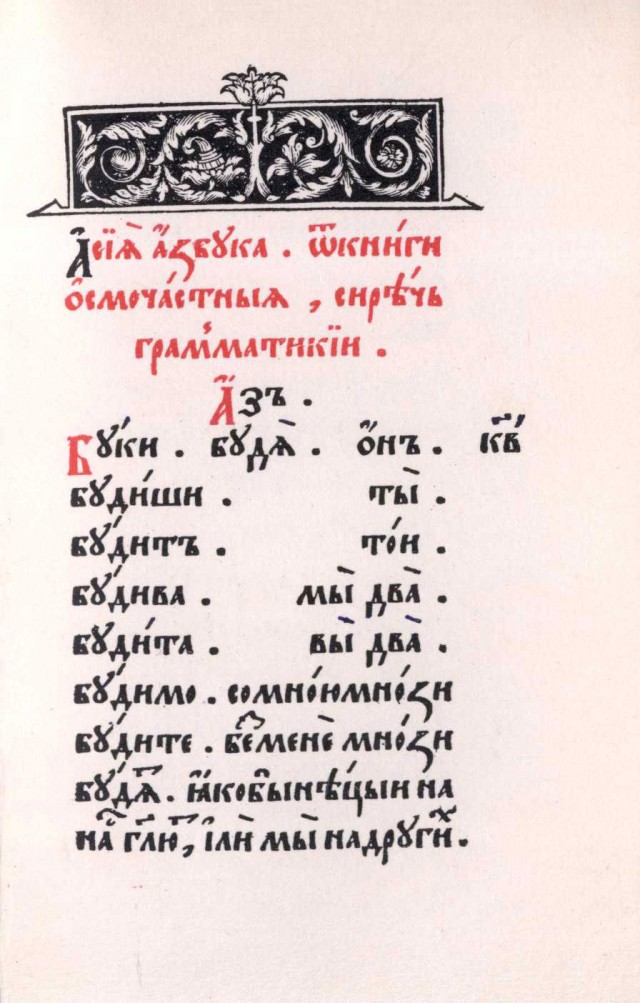 А сїѧ̀ а҆́збꙋка . ѿ кни́ги
о҆смоча́стныѧ , сирѣ́чь
грамма́тикїи .
А҆́зъ .
Бꙋ́ки . бꙋдѧ̀ . ѻ҆́нъ .
бꙋди́ши . ты̀ .
бꙋ́дитъ . то́и .
бꙋ́дива . мы̀ два̀ .
бꙋди́та . вы̀ два̀ .
бꙋ́димо . со мно́ю мно́ѕи
бꙋ́дите . беⷥ менѐ мно́ѕи
бꙋ́дѧⷮ . ꙗ҆́кобы нѣ́цыи на
наⷭ҇ гл҃юⷮ , і҆лѝ мы̀ на дрꙋги́хъ .